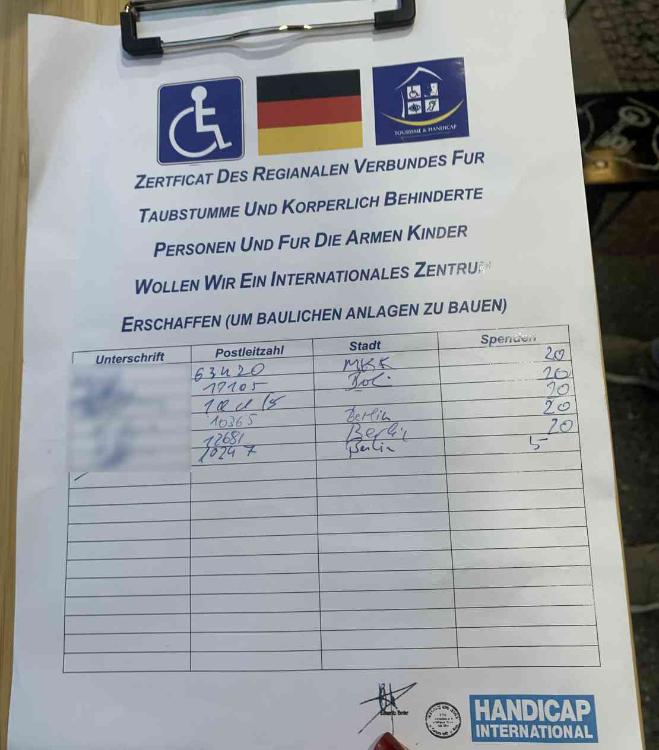 TOURISME & HANDICAP
ZERTFICAT DES REGIANALEN VERBUNDES FUR
TAUBSTUMME UND KORPERLICH BEHINDERTE
PERSONEN UND FUR DIE ARMEN KINDER
WOLLEN WIR EIN INTERNATIONALES ZENTRUM
ERSCHAFFEN (UM BAULICHEN ANLAGEN ZU BAUEN)
Unterschrift Postleitzahl Stadt Spenden
63420 MKK 20
17105 20
20
10365 Berlin 20
12681 Berlin 20
10247 Berlin 5
HANDICAP
INTERNATIONAL